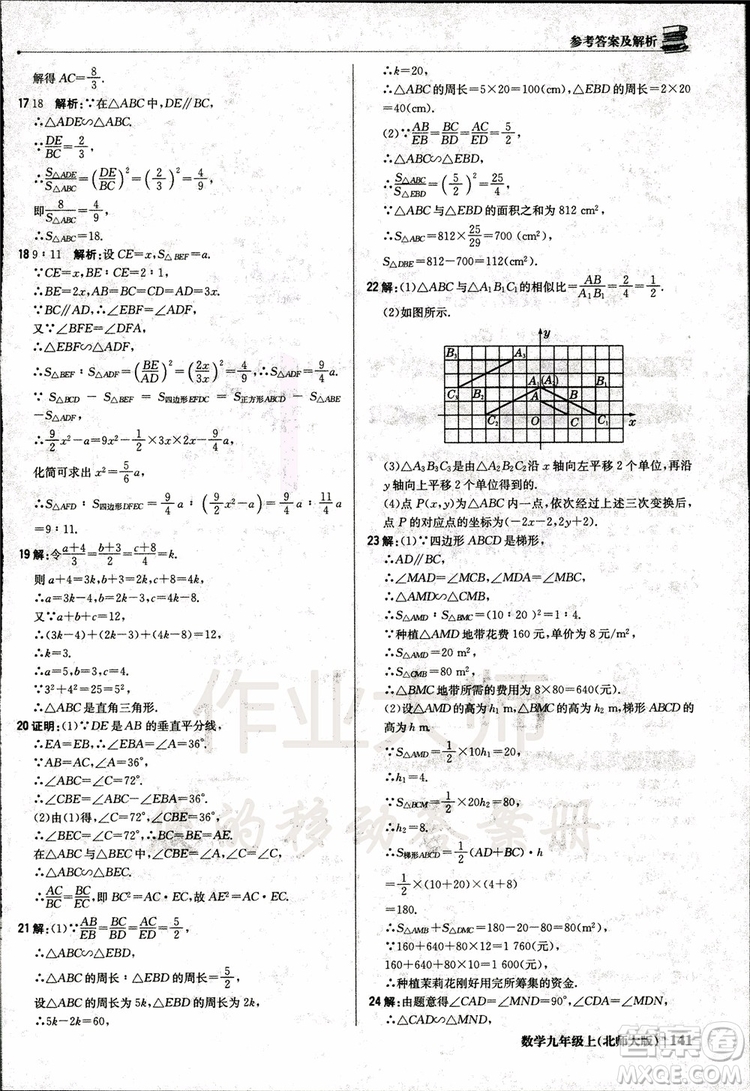 参考答案及解析
解得 AC=8/3.
17 18 解析:∵在△ABC中,DE∥BC,
∴△ADE∽△ABC.
∵DE/BC=2/3,
∴S△ADE/S△ABC=(DE/BC)²=(2/3)²=4/9,
即8/S△ABC=4/9,
∴S△ABC=18.
18 9∶11 解析:设 CE=x,S△BEF=a.
∵CE=x,BE∶CE=2∶1,
∴BE=2x,AD=BC=CD=AD=3x.
∵BC∥AD,∴∠EBF=∠ADF.
又∵∠BFE=∠DFA,
∴△EBF∽△ADF.
∴S△BEF∶S△ADF=(BE/AD)²=(2x/3x)²=4/9,∴S△ADF=9/4 a.
∵S△BCD-S△BEF=S四边形EFDC=S正方形ABCD-S△ABE
-S△ADF,
∴9/2 x²-a=9x²-1/2×3x·2x-9/4 a,
化简可求出 x²=5/6 a,
∴S△AFD∶S四边形DFEC=9/4 a∶(9/2 x²-a)=9/4 a∶11/4 a=
9∶11.
19 解:令(a+4)/3=(b+3)/2=(c+8)/4=k.
则 a+4=3k,b+3=2k,c+8=4k,
∴a=3k-4,b=2k-3,c=4k-8.
又∵a+b+c=12,
∴(3k-4)+(2k-3)+(4k-8)=12,
∴k=3.
∴a=5,b=3,c=4,
∵3²+4²=25=5²,
∴△ABC是直角三角形.
20 证明:(1)∵DE是AB的垂直平分线,
∴EA=EB,∴∠EBA=∠A=36°,
∵∠BAC=∠A=36°,
∴∠ABC=∠C=72°.
∴∠CBE=∠ABC-∠EBA=36°.
(2)由(1)得,∠C=72°,∠CBE=36°,
∴∠BEC=72°=∠C,∴BC=BE=AE.
在△ABC与△BEC中,∠CBE=∠A,∠C=∠C,
∴△ABC∽△BEC.
∴AC/BC=BC/EC,即BC²=AC·EC,故AE²=AC·EC.
21 解:(1)∵AB/EB=BC/BD=AC/ED=5/2,
∴△ABC∽△EBD,
∴△ABC的周长∶△EBD的周长=5/2,
设△ABC的周长为 5k,△EBD的周长为 2k,
∴5k-2k=60,
∴k=20,
∴△ABC的周长=5×20=100(cm),△EBD的周长=2×20
=40(cm).
(2)∵AB/EB=BC/BD=AC/ED=5/2,
∴△ABC∽△EBD,
∴S△ABC/S△EBD=(5/2)²=25/4,
∵△ABC与△EBD的面积之和为 812 cm²,
∴S△ABC=812×25/29=700 cm²,
S△DBE=812-700=112 cm².
22 解:(1)△ABC与△A₁B₁C₁的相似比=AB/A₁B₁=2/4=1/2.
(2)如图所示.
y
B₃ A₃ A₁(A₂) B₁
C₃ B₂ A B
C₂ O C C₁ x
(3)△A₃B₃C₃由△A₂B₂C₂沿 x 轴向左平移 2 个单位,再沿
y 轴向上平移 2 个单位得到的.
(4)点 P(x,y)为△ABC内一点,依次经过上述三次变换后,
点 P 的对应点的坐标为(-2x-2,2y+2).
23 解:(1)∵四边形 ABCD 是梯形,
∴AD∥BC,
∴∠MAD=∠MCB,∠MDA=∠MBC,
∴△AMD∽△CMB,
∴S△AMD∶S△BMC=(10∶20)²=1∶4.
∵种植△AMD地带花费 160 元,单价为 8 元/m²,
∴S△AMD=20 m²,
∴S△CMB=80 m²,
∴△BMC地带所需的费用为 8×80=640(元).
(2)设△AMD的高为h₁ m,△BMC的高为 h₂ m,梯形ABCD的
高为 h m.
∵S△AMD=1/2×10h₁=20,
∴h₁=4.
∵S△BCM=1/2×20h₂=80,
∴h₂=8.
∴S梯形ABCD=1/2(AD+BC)·h
=1/2×(10+20)×(4+8)
=180.
∴S△AMB+S△DMC=180-20-80=80(m²),
∵160+640+80×12=1 760(元),
160+640+80×10=1 600(元),
∴种植茉莉花刚好用完所筹集的资金.
24 解:由题意得∠CAD=∠MND=90°,∠CDA=∠MDN,
∴△CAD∽△MND,
数学九年级上(北师大版) 141
作业大师
我的移动答案册
答案圈